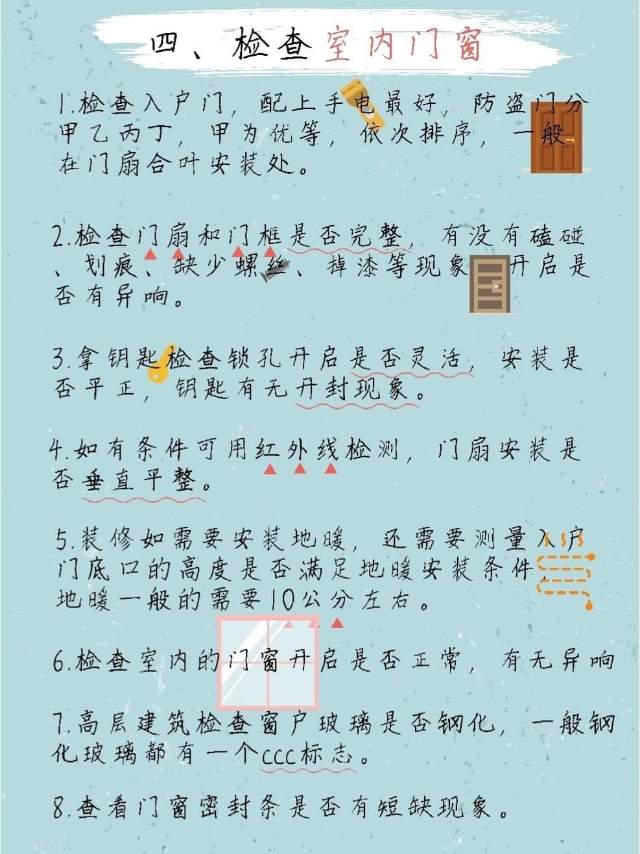 四、检查室内门窗
1.检查入户门，配上手电最好，防盗门分
甲乙丙丁，甲为优等，依次排序，一般
在门扇合叶安装处。
2.检查门扇和门框是否完整，有没有磕碰
、划痕、缺少螺丝、掉漆等现象，开启是
否有异响。
3.拿钥匙检查锁孔开启是否灵活，安装是
否平正，钥匙有无开封现象。
4.如有条件可用红外线检测，门扇安装是
否垂直平整。
5.装修如需要安装地暖，还需要测量入户
门底口的高度是否满足地暖安装条件，
地暖一般的需要10公分左右。
6.检查室内的门窗开启是否正常，有无异响
7.高层建筑检查窗户玻璃是否钢化，一般钢
化玻璃都有一个ccc标志。
8.查看门窗密封条是否有短缺现象。